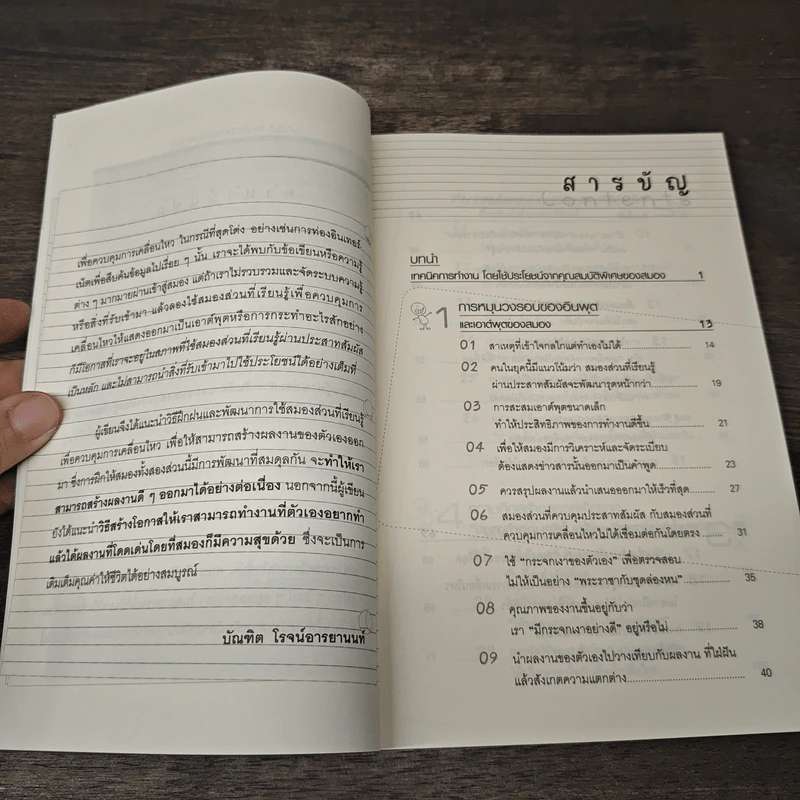 เพื่อควบคุมการเคลื่อนไหว ในกรณีที่สุดโต่ง อย่างเช่นการท่องอินเทอร์-
เน็ตเพื่อสืบค้นข้อมูลไปเรื่อย ๆ นั้น เราจะได้พบกับข้อเขียนหรือความรู้
ต่าง ๆ มากมายผ่านเข้าสู่สมอง แต่ถ้าเราไม่รวบรวมและจัดระบบความรู้
หรือสิ่งที่รับเข้ามา แล้วลองใช้สมองส่วนที่เรียนรู้เพื่อควบคุมการ
เคลื่อนไหวให้แสดงออกมาเป็นเอาต์พุตหรือการกระทำอะไรสักอย่าง
ก็มีโอกาสที่เราจะอยู่ในสภาพที่ใช้สมองส่วนที่เรียนรู้ผ่านประสาทสัมผัส
เป็นหลัก และไม่สามารถนำสิ่งที่รับเข้ามาไปใช้ประโยชน์ได้อย่างเต็มที่
ผู้เขียนจึงได้แนะนำวิธีฝึกฝนและพัฒนาการใช้สมองส่วนที่เรียนรู้
เพื่อควบคุมการเคลื่อนไหว เพื่อให้สามารถสร้างผลงานของตัวเองออก
มา ซึ่งการฝึกให้สมองทั้งสองส่วนนี้มีการพัฒนาที่สมดุลกัน จะทำให้เรา
สามารถสร้างผลงานดี ๆ ออกมาได้อย่างต่อเนื่อง นอกจากนี้ผู้เขียน
ยังได้แนะนำวิธีสร้างโอกาสให้เราสามารถทำงานที่ตัวเองอยากทำ
แล้วได้ผลงานที่โดดเด่นโดยที่สมองก็มีความสุขด้วย ซึ่งจะเป็นการ
เติมเต็มคุณค่าให้ชีวิตได้อย่างสมบูรณ์
บัณฑิต โรจน์อารยานนท์
สารบัญ
Contents
บทนำ
เทคนิคการทำงาน โดยใช้ประโยชน์จากคุณสมบัติพิเศษของสมอง 1
1 การหมุนวงรอบของอินพุต
และเอาต์พุตของสมอง 13
01 สาเหตุที่เข้าใจกลไกแต่ทำเองไม่ได้ 14
02 คนในยุคนี้มีแนวโน้มว่า สมองส่วนที่เรียนรู้
ผ่านประสาทสัมผัสจะพัฒนารุดหน้ากว่า 19
03 การสะสมเอาต์พุตขนาดเล็ก
ทำให้ประสิทธิภาพของการทำงานดีขึ้น 21
04 เพื่อให้สมองมีการวิเคราะห์และจัดระเบียบ
ต้องแสดงข่าวสารนั้นออกมาเป็นคำพูด 23
05 ควรสรุปผลงานแล้วนำเสนอออกมาให้เร็วที่สุด 27
06 สมองส่วนที่ควบคุมประสาทสัมผัส กับสมองส่วนที่
ควบคุมการเคลื่อนไหวไม่ได้เชื่อมต่อกันโดยตรง 31
07 ใช้ “กระจกเงาของตัวเอง” เพื่อตรวจสอบ
ไม่ให้เป็นอย่าง “พระราชากับชุดล่องหน” 35
08 คุณภาพของงานขึ้นอยู่กับว่า
เรา “มีกระจกเงาอย่างดี” อยู่หรือไม่ 38
09 นำผลงานของตัวเองไปวางเทียบกับผลงาน ที่ใฝ่ฝัน
แล้วสังเกตความแตกต่าง 40